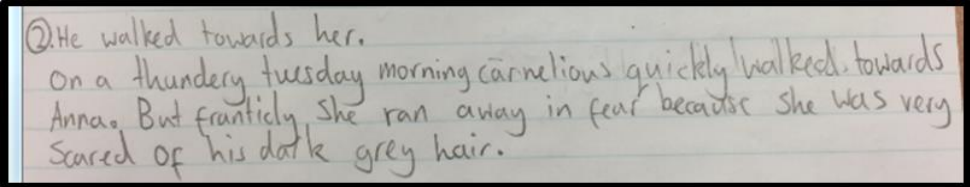 ②. He walked towards her.
on a thundery tuesday morning carnelious quickly walked. towards
Anna. But franticly She ran away in fear because She was very
Scared of his dark grey hair.